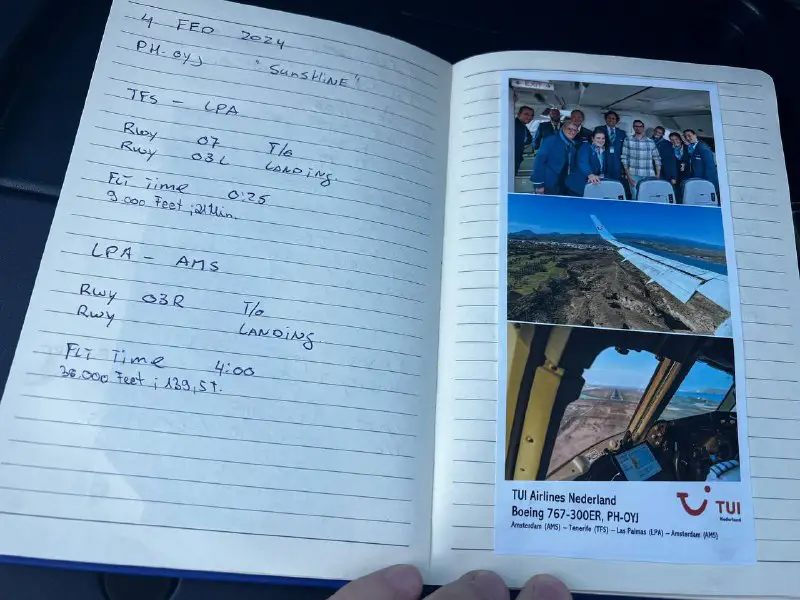 4 FEB 2024
PH-OYJ "SunshiNE"
TFS - LPA
Rwy 07 T/o
Rwy 03L LANDING.
FLT Time 0:25
9.000 Feet ;
LPA - AMS
Rwy 03R T/o
Rwy LANDING
FLT Time 4:00
36.000 Feet ; 139,5T.
EXIT
TUI Airlines Nederland
Boeing 767-300ER, PH-OYJ
Amsterdam (AMS) – Tenerife (TFS) – Las Palmas (LPA) – Amsterdam (AMS)
TUI
Nederland